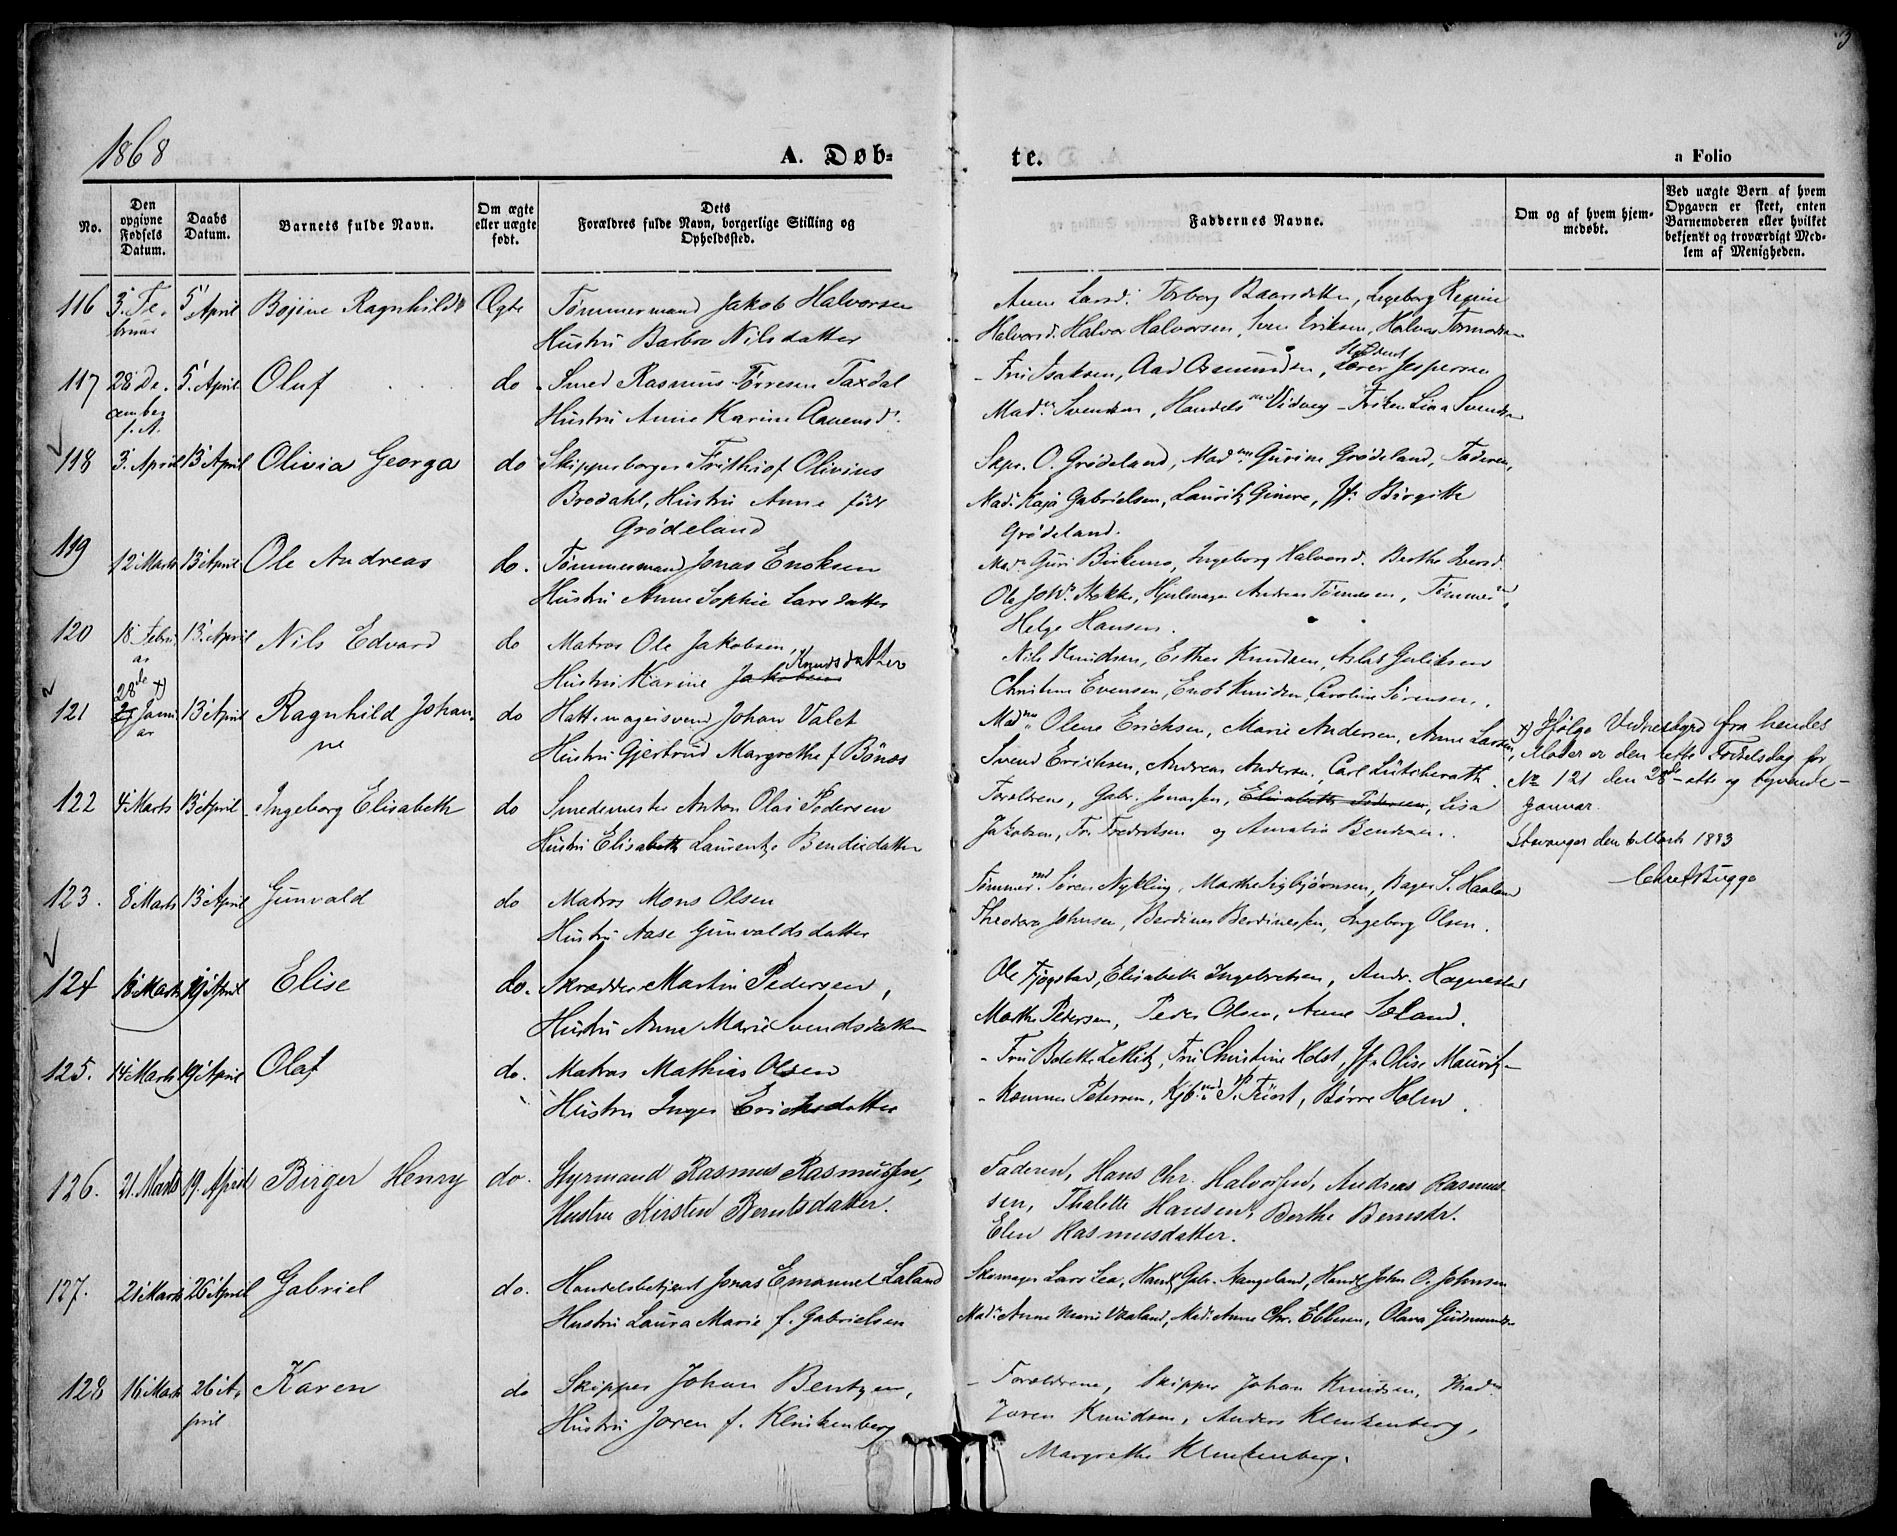 3
1868
A. Døb=
te.
a Folio
No.
Den opgivne Fødsels Datum.
Daabs Datum.
Barnets fulde Navn.
Om ægte eller uægte født.
Dets Forældres fulde Navn, borgerlige Stilling og Opholdssted.
Faddernes Navne.
Om og af hvem hjemmedøbt.
Ved uægte Børn af hvem Opgaven er skeet, enten Barnemoderen eller hvilket bekjendt og troværdigt Medlem af Menigheden.
116 3. Februar 5' April Ægte Tømmermand Jakob Halvorsen
Hustru Barbro Nilsdatter
Anne Larsd. Torborg Baarsdatter, Ingeborg Regine
Halvorsd. Halvor Halvorsen, Sven Eriksen, Halvor
117 28 December f. A. 5. April Oluf do Smed Rasmus Tørresen Taxdal
Hustru Anne Karine
Fru Isaksen, Aad Asmundsen, Lærer Jespersen
Mad. Svendsen, Handels Vidvey Frøken Lina Svendsen
118 3. April 13 April Olivia Georga do Skipperborger Frithiof Olivius
Brodahl, Hustru Anne født
Grödeland
Skpr. O. Grödeland, Mad. Gurine Grödeland, Faderen,
Mad. Kaja Gabrielsen, Lauritz Jfr. Birgitte
Grödeland.
119 12 Marts 13 April Ole Andreas do. Tømmermand Jonas Enoksen
Hustru Anne Sophie Larsdatter
Mad. Guri Ingeborg Halvorsd. Berthe
Ole Hjulmager Andreas Tømmer
Helge Hansen.
120 18 Februar 13. April Nils Edvard do Matros Ole Jakobsen,
Hustru Karine Jakobsen Knudsdatter
Nils Knudsen, Esther Knudsen, Aslak
Christine Evensen, Enok Knudsen, Caroline Sørensen.
121 28de x) 27 Januar 13 April Ragnhild Johanne do Hattemagersvend Johan Valet
Hustru Gjertrud Margrethe f. Bönes
Madme Olene Erichsen, Marie Andersen, Anne Larsen,
Svend Erichsen, Andreas Andersen, Carl Lütcherath.
x) Ifølge Vidnesbyrd fra hendes
Moder er den rette Fødselsdag for
No 121 den 28de - otte og tyvende -
Januar.
Stavanger den 6 Marts 1883
Chr. Bugge
122 4 Marts 13 April Ingeborg Elisabeth do Smedemester Anton Olai Pedersen
Hustru Elisabeth Laurentze Bendixdatter
Forældrene, Gabr. Jonassen, Elisabeth Pedersen, Lisa
Jakobsen, Fr. Fredriksen og Amalia
123. 8 Marts 13 April Gunvald do Matros Mons Olsen
Hustru Aase Gunvaldsdatter
Tømmermd. Søren Nykling, Marthe Sigbjørnsen, Bager S. Haaland
Theodora Johnsen, Berdines Berdinessen, Ingeborg Olsen.
124 18 Marts 19 April Elise do. Skrædder Martin Pedersen,
Hustru Anna Marie Svendsdatter
Ole Fjøgstad, Elisabeth Ingebretsen, Andr.
Marthe Pedersen, Peder Olsen, Anne Soland.
125. 14 Marts 19 April Olaf do. Matros Mathias Olsen
Hustru Inger Erichsdatter
Fru Bolette Zetlitz, Fru Christine Holst, Jfr. Elise Mauritz
Petersen, Kjbmd. P. Friest, Børre Holm.
126. 21. Marts 19. April Birger Henry do. Styrmand Rasmus Rasmussen,
Hustru Kirsten Berntsdatter.
Faderen, Hans Chr. Halvorsen, Andreas Rasmus-
sen, Thalette Hansen, Berthe Berntsdr.
Elen Rasmusdatter.
127. 21 Marts 26 April Gabriel do. Handelsbetjent Jonas Emanuel Laland
Hustru Laura Marie f. Gabrielsen
Skomager Lars Lea, Handl. Gabr. Aangeland, Handl. John O. Johnsen
Mad. Anne Marie Vaaland, Mad. Anne Chr. Ebbesen, Olava Gudmundsen
128 16 Marts 26 April Karen do Skipper Johan Bentzen,
Hustru Joren f. Klinkenberg
Forældrene, Skipper Johan Knudsen, Mad.
Joren Knudsen, Anders Klinkenberg,
Margrethe Klinkenberg.